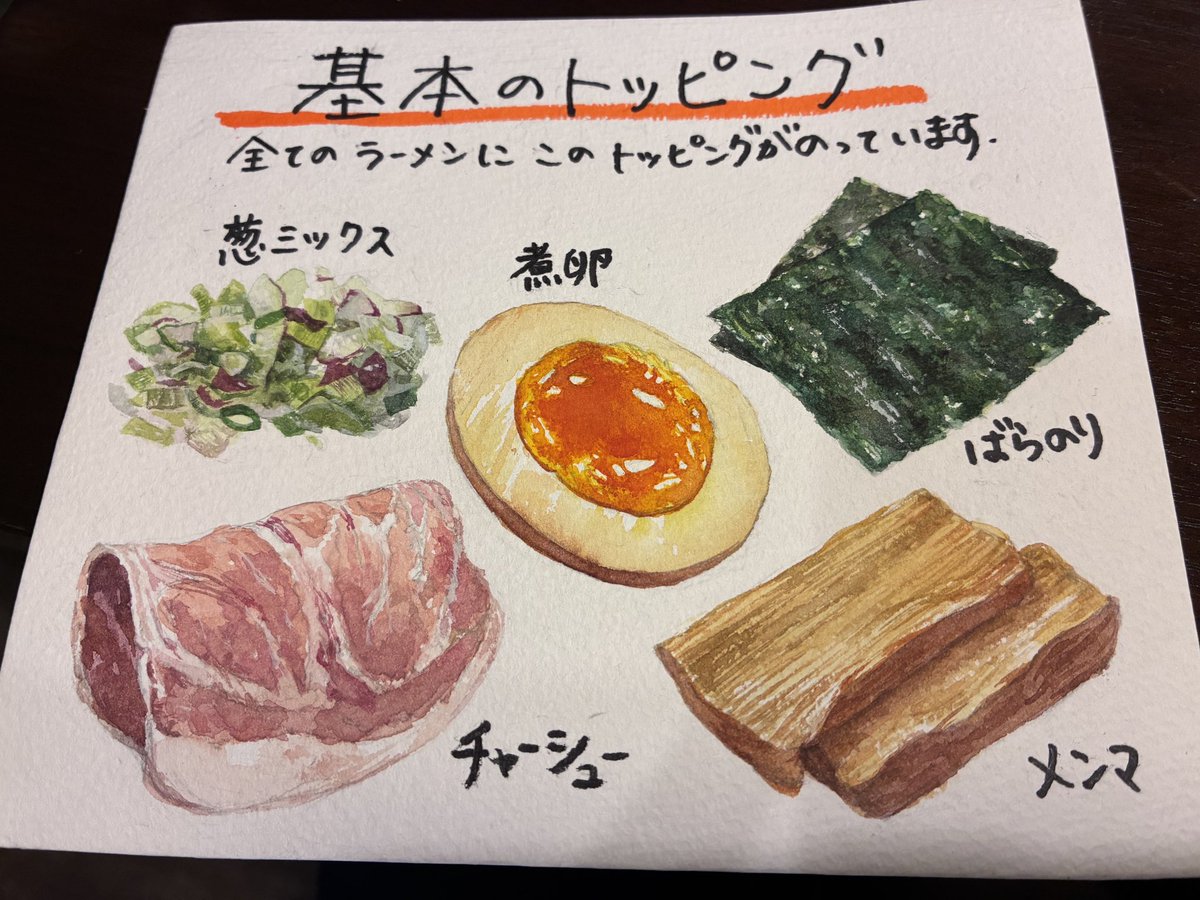 基本のトッピング
全てのラーメンにこのトッピングがのっています.
葱ミックス
煮卵
ばらのり
チャーシュー
メンマ